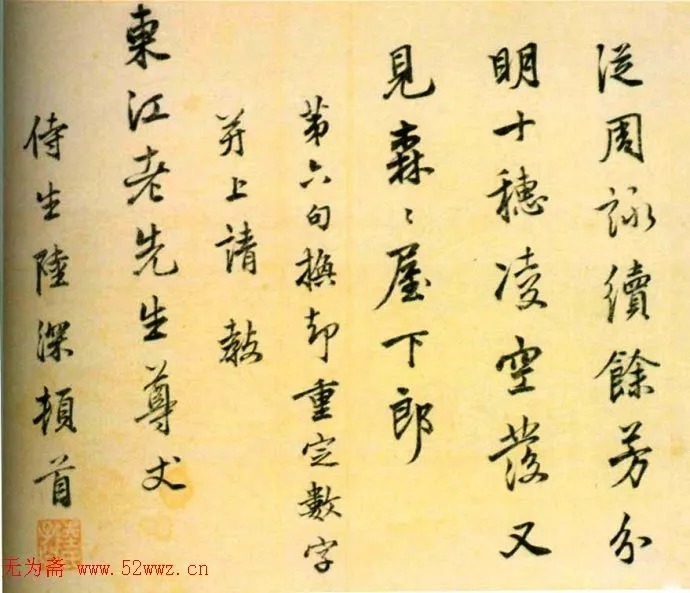 從周詠續餘芳分
明十穗凌空發又
見森〻屋下郎
第六句撫却重定數字
並上請教
東江老先生尊丈
侍生陸深頓首
无为斋 www.52wwz.cn